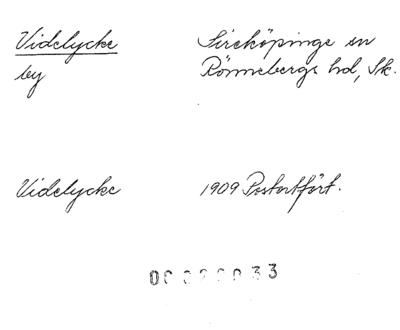 Videlycke Sireköpinge sn
by Rönnebergs hd, Sk.
Videlycke 1909 Postortför­t.